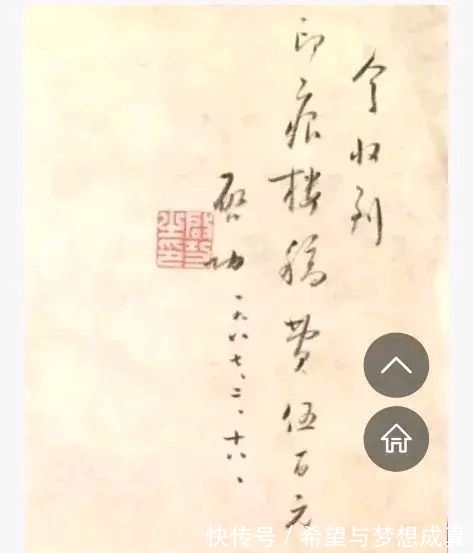 今收到
印痕楼稿费伍百元
启功
一九八七、二、十六、
启功之印
快传号 / 希望与梦想成真